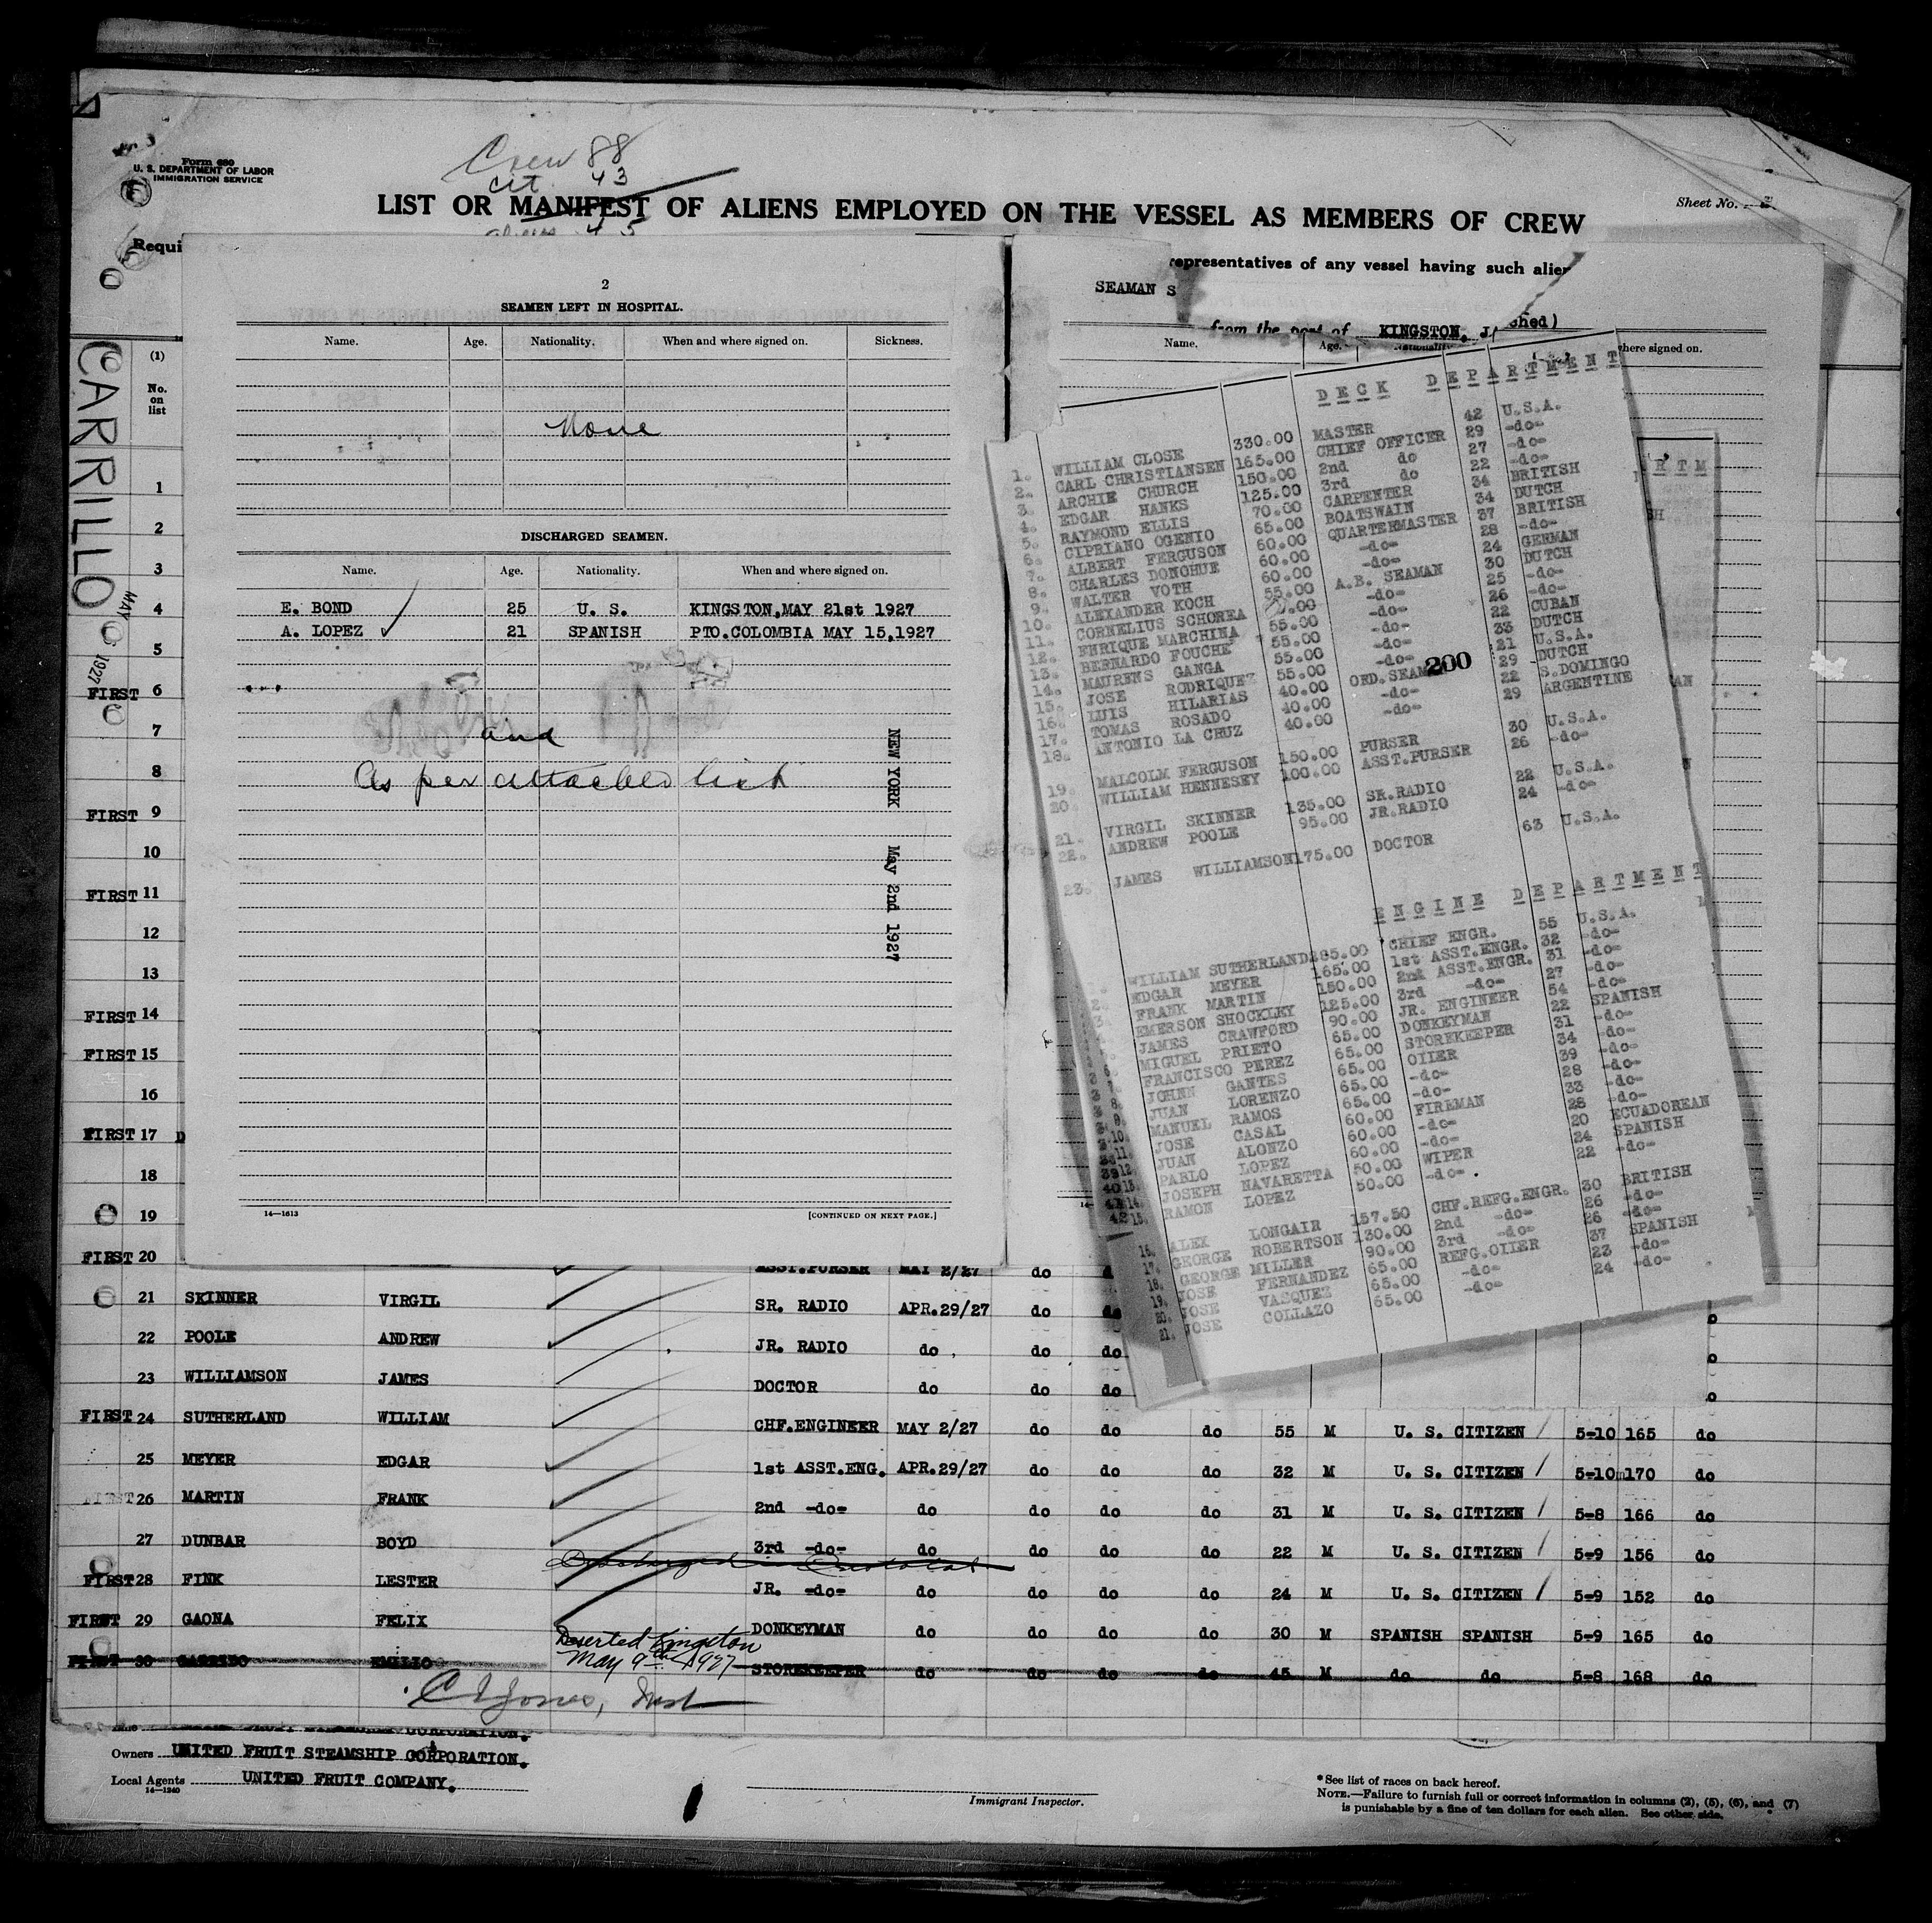 Form 680
U. S. DEPARTMENT OF LABOR
IMMIGRATION SERVICE
Crew 88
cit 43
aliens 45
LIST OR MANIFEST OF ALIENS EMPLOYED ON THE VESSEL AS MEMBERS OF CREW
Sheet No.
Requi
representatives of any vessel having such alien
SEAMAN S
from the port of KINGSTON, J
shed)
CARRILLO
MAY
1927
(1)
No.
on
list
1
2
3
4
5
FIRST 6
7
8
FIRST 9
10
FIRST 11
12
13
FIRST 14
FIRST 15
16
FIRST 17
18
19
FIRST 20
2
SEAMEN LEFT IN HOSPITAL.
Name. Age. Nationality. When and where signed on. Sickness.
None
DISCHARGED SEAMEN.
Name. Age. Nationality. When and where signed on.
E. BOND 25 U. S. KINGSTON,MAY 21st 1927
A. LOPEZ 21 SPANISH PTO.COLOMBIA MAY 15,1927
and
As per attached list
NEW YORK May 2nd 1927
14—1613
[CONTINUED ON NEXT PAGE.]
Name. Age. Nationality. where signed on.
DECK DEPARTMENT
1. WILLIAM CLOSE 330.00 MASTER 42 U.S.A.
2. CARL CHRISTIANSEN 165.00 CHIEF OFFICER 29 -do-
3. ARCHIE CHURCH 150.00 2nd do 27 -do-
4. EDGAR HANKS 125.00 3rd do 22 -do-
5. RAYMOND ELLIS 70.00 CARPENTER 34 BRITISH
6. CIPRIANO OGENIO 65.00 BOATSWAIN 34 DUTCH
7. ALBERT FERGUSON 60.00 QUARTERMASTER 37 BRITISH
8. CHARLES DONOHUE 60.00 -do- 28 -do-
9. WALTER VOTH 60.00 -do- 24 GERMAN
10. ALEXANDER KOCH 55.00 A.B. SEAMAN 30 DUTCH
11. CORNELIUS SCHOREA -do- 25 -do-
12. ENRIQUE MARCHINA 55.00 -do- 26 -do-
13. BERNARDO FOUCHE 55.00 -do- 22 CUBAN
14. MAURENS GANGA 55.00 -do- 33 DUTCH
15. JOSE RODRIQUEZ 55.00 -do- 21 U.S.A.
16. LUIS HILARIAS 40.00 ORD.SEAMAN 29 DUTCH
17. TOMAS ROSADO 40.00 -do- 22 S.DOMINGO
18. ANTONIO LA CRUZ 40.00 -do- 29 ARGENTINE
200
19. MALCOLM FERGUSON 150.00 PURSER 30 U.S.A.
20. WILLIAM HENNESEY 100.00 ASST.PURSER 26 -do-
21. VIRGIL SKINNER 135.00 SR.RADIO 22 U.S.A.
22. ANDREW POOLE 95.00 JR.RADIO 24 -do-
23. JAMES WILLIAMSON 175.00 DOCTOR 63 U.S.A.
ENGINE DEPARTMENT
WILLIAM SUTHERLAND 285.00 CHIEF ENGR. 55 U.S.A.
2. EDGAR MEYER 165.00 1st ASST.ENGR. 32 -do-
3. FRANK MARTIN 150.00 2nd ASST.ENGR. 31 -do-
EMERSON SHOCKLEY 125.00 3rd -do- 27 -do-
JAMES CRAWFORD 90.00 JR. ENGINEER 54 -do-
6. MIGUEL PRIETO 65.00 DONKEYMAN 22 SPANISH
7. FRANCISCO PEREZ 65.00 STOREKEEPER 31 -do-
8. JOHNN GANTES 65.00 OILER 34 -do-
9. JUAN LORENZO 65.00 -do- 39 -do-
10. MANUEL RAMOS 65.00 -do- 28 -do-
11. JOSE CASAL 60.00 FIREMAN 33 -do-
12. JUAN ALONZO 60.00 -do- 28 -do-
13. PABLO LOPEZ 60.00 -do- 20 ECUADOREAN
14. JOSEPH NAVARETTA 50.00 WIPER 24 SPANISH
15. RAMON LOPEZ 50.00 -do- 22 -do-
16. ALEX LONGAIR 157.50 CHF.REFG.ENGR. 30 BRITISH
17. GEORGE ROBERTSON 130.00 2nd -do- 26 -do-
18. GEORGE MILLER 90.00 3rd -do- 26 -do-
19. JOSE FERNANDEZ 65.00 REFG.OILER 37 SPANISH
20. JOSE VASQUEZ 65.00 -do- 23 -do-
21. JOSE COLLAZO 65.00 -do- 24 -do-
RTM
ASST.PURSER MAY 2/27 do
21 SKINNER VIRGIL SR. RADIO APR.29/27 do do
22 POOLE ANDREW JR. RADIO do do do
23 WILLIAMSON JAMES DOCTOR do do do
FIRST 24 SUTHERLAND WILLIAM CHF.ENGINEER MAY 2/27 do do do 55 M U. S. CITIZEN 5-10 165 do
25 MEYER EDGAR 1st ASST.ENG. APR.29/27 do do do 32 M U. S. CITIZEN 5-10 170 do
FIRST 26 MARTIN FRANK 2nd -do- do do do do 31 M U. S. CITIZEN 5-8 166 do
27 DUNBAR BOYD 3rd -do- do do do do 22 M U. S. CITIZEN 5-9 156 do
FIRST 28 FINK LESTER JR. -do- do do do do 24 M U. S. CITIZEN 5-9 152 do
FIRST 29 GAONA FELIX DONKEYMAN do do do do 30 M SPANISH SPANISH 5-9 165 do
Deserted Kingston
May 9th 1927
FIRST 30 EMILIO STOREKEEPER do do do do 45 M do do 5-8 168 do
Owners UNITED FRUIT STEAMSHIP CORPORATION.
Local Agents UNITED FRUIT COMPANY.
14—1240
Immigrant Inspector.
*See list of races on back hereof.
NOTE.—Failure to furnish full or correct information in columns (2), (5), (6), and (7)
is punishable by a fine of ten dollars for each alien. See other side.